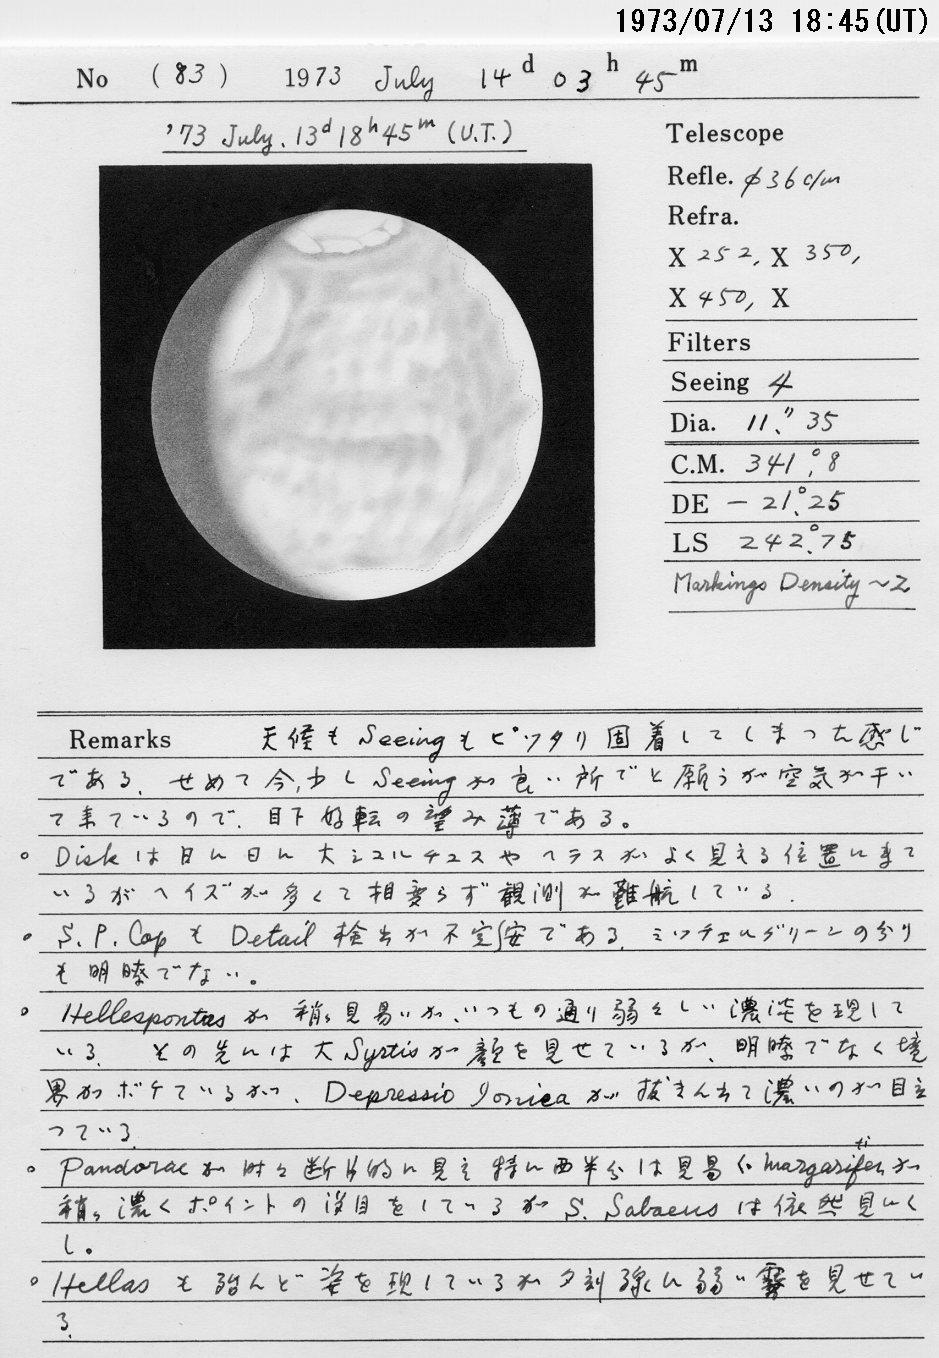 1973/07/13 18:45(UT)
No (83) 1973 July 14d 03h 45m
'73 July. 13d 18h 45m (U.T.)
Telescope
Refle. φ36c/m
Refra.
X 252, X 350,
X 450, X
Filters
Seeing 4
Dia. 11."35
C.M. 341.°8
DE -21.°25
LS 242.°75
Markings Density ~2
Remarks 天候も Seeing も ピッタリ 固着してしまった感じ
である. せめて今少し Seeing が良い所でと願うが空気が干い
て来ているので、目下好転の望み薄である。
○ Disk は日に日に大シュルチュスや ヘラスがよく見える位置に来て
いるがヘイズが多くて相変らず観測が難航している.
○ S.P.Cap も Detail 検出が不安定である. ミッチェルグリーンの分り
も明瞭でない。
○ Hellespontus が稍々見易いが、いつもの通り弱々しい濃淡を現して
いる. その先には大Syrtisが顔を見せているが、明瞭でなく境
界がボケているが、Depressio Ionica が抜きん出て濃いのが目立
っている.
○ Pandorae が時々断片的に見え特に西半分は見易く margaritifer が
稍々濃くポイントの役目をしているが S. Sabaeus は依然見にく
し。
○ Hellas も殆んど姿を現しているが夕刻線に弱い霧を見せてい
る.